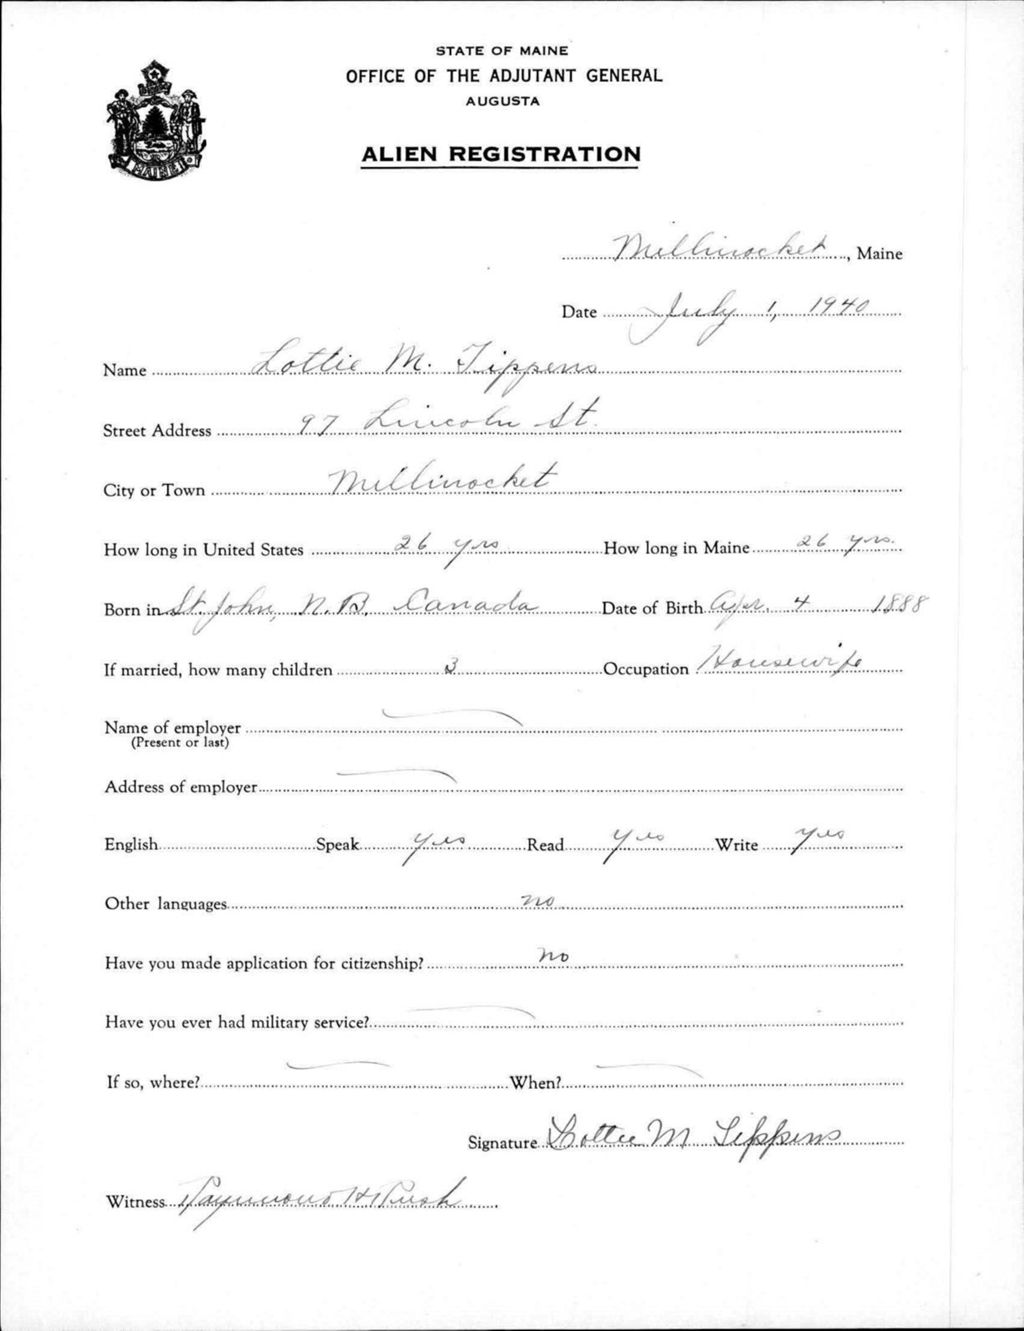 STATE OF MAINE
OFFICE OF THE ADJUTANT GENERAL
AUGUSTA
ALIEN REGISTRATION
MAINE
Millinocket, Maine
Date July 1, 1940
Name Lottie M. Tippens
Street Address 97 Lincoln St.
City or Town Millinocket
How long in United States 26 yrs How long in Maine 26 yrs.
Born in St. John, N.B. Canada Date of Birth Apr. 4 1888
If married, how many children 3 Occupation Housewife
Name of employer
(Present or last)
Address of employer
English Speak yes Read yes Write yes
Other languages no
Have you made application for citizenship? no
Have you ever had military service?
If so, where? When?
Signature Lottie M Tippens
Witness Raymond H Rush